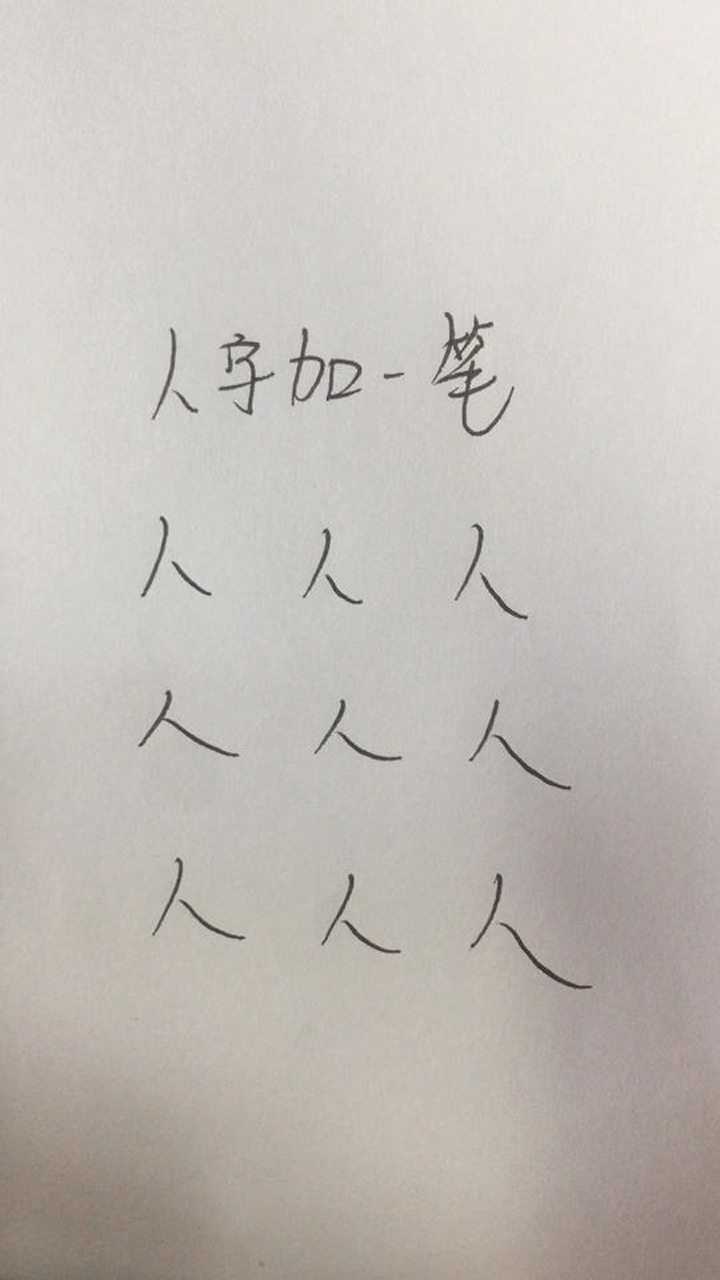 人字加一笔
人 人 人
人 人 人
人 人 人